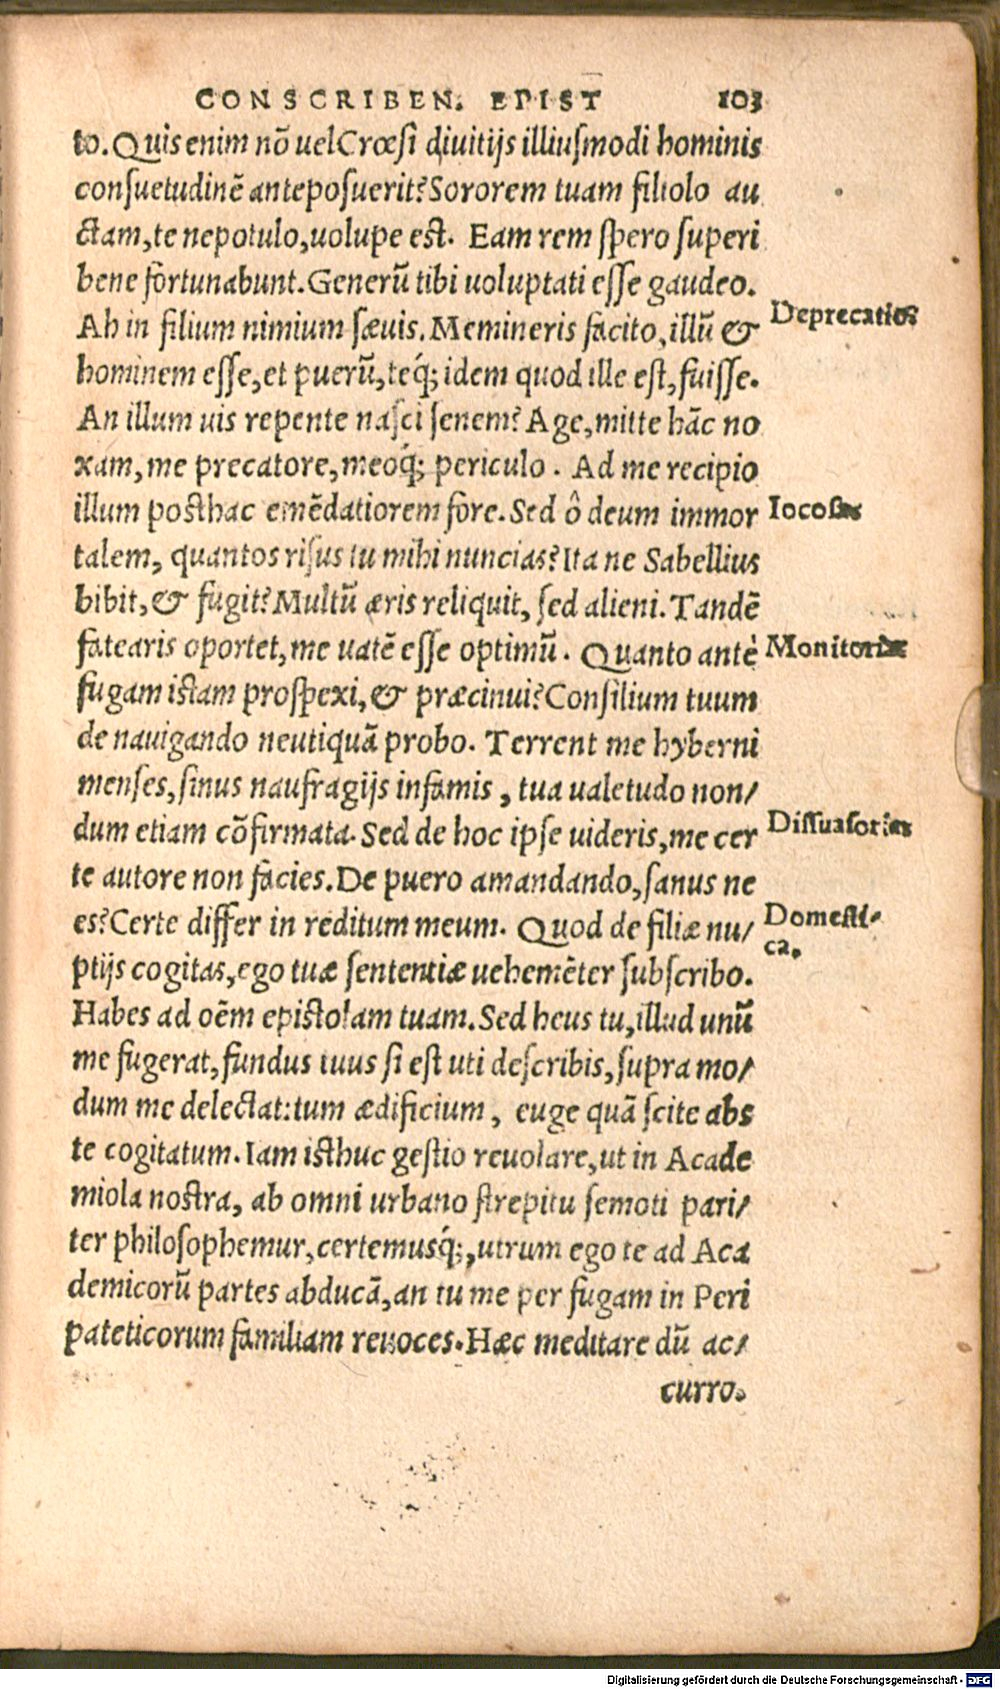 CONSCRIBEN. EPIST 103
to. Quis enim nõ uel Crœsi diuitijs illiusmodi hominis
consuetudinẽ anteposuerit? Sororem tuam filiolo au
ctam, te nepotulo, uolupe est. Eam rem spero superi
bene fortunabunt. Generũ tibi uoluptati esse gaudeo.
Ah in filium nimium sæuis. Memineris facito, illũ &
Deprecatio?
hominem esse, et puerũ, teq́; idem quod ille est, fuisse.
An illum uis repente nasci senem? Age, mitte hãc no
xam, me precatore, meoq́; periculo. Ad me recipio
illum posthac emẽdatiorem fore. Sed ô deum immor
Iocosæ
talem, quantos risus tu mihi nuncias? Ita ne Sabellius
bibit, & fugit? Multũ æris reliquit, sed alieni. Tandẽ
fatearis oportet, me uatẽ esse optimũ. Quanto antè
Monitoriæ
fugam istam prospexi, & præcinui? Consilium tuum
de nauigando neutiquã probo. Terrent me hyberni
menses, sinus naufragijs infamis, tua ualetudo non/
dum etiam cõfirmata. Sed de hoc ipse uideris, me cer
Dissuasoriæ
te autore non facies. De puero amandando, sanus ne
es? Certe differ in reditum meum. Quod de filiæ nu/
Domesti-
ca.
ptijs cogitas, ego tuæ sententiæ uehemẽter subscribo.
Habes ad oẽm epistolam tuam. Sed heus tu, illud unũ
me fugerat, fundus tuus si est uti describis, supra mo/
dum me delectat: tum ædificium, euge quã scite abs
te cogitatum. Iam isthuc gestio reuolare, ut in Acade
miola nostra, ab omni urbano strepitu semoti pari/
ter philosophemur, certemusq́;, utrum ego te ad Aca
demicorũ partes abducã, an tu me per fugam in Peri
pateticorum familiam reuoces. Hæc meditare dũ ac/
curro.
Digitalisierung gefördert durch die Deutsche Forschungsgemeinschaft - DFG